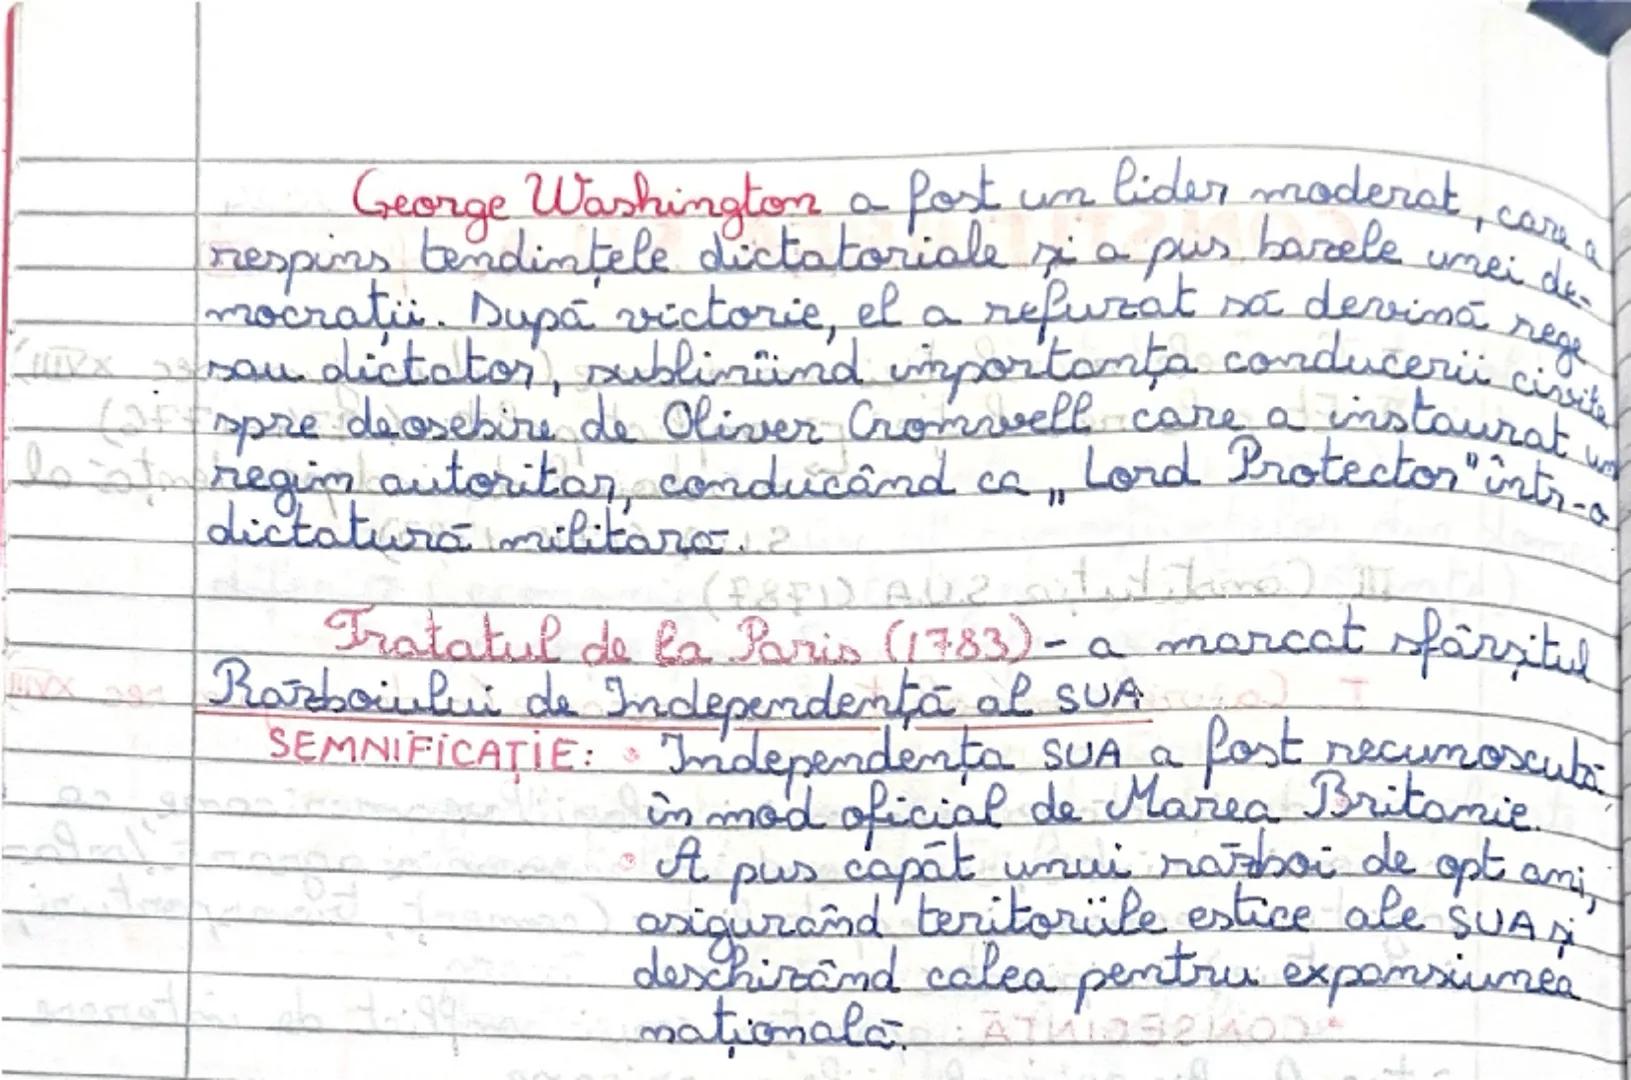 George Washington a fost un lider moderat, care a
respins tendințele dictatoriale și a pus bazele unei de-
mocrații. După victorie, el a refuzat să devină rege
sau dictator, subliniind importanța conducerii civile
spre deosebire de Oliver Cromwell care a instaurat un
regim autoritar, conducând ca „Lord Protector" într-o
dictatură militară.
Tratatul de la Paris (1783) - a marcat sfârșitul
Războiului de Independență al SUA
SEMNIFICAȚIE: • Independența SUA a fost recunoscută
în mod oficial de Marea Britanie.
• A pus capăt unui război de opt ani,
asigurând teritoriile estice ale SUA și
deschizând calea pentru expansiunea
națională.